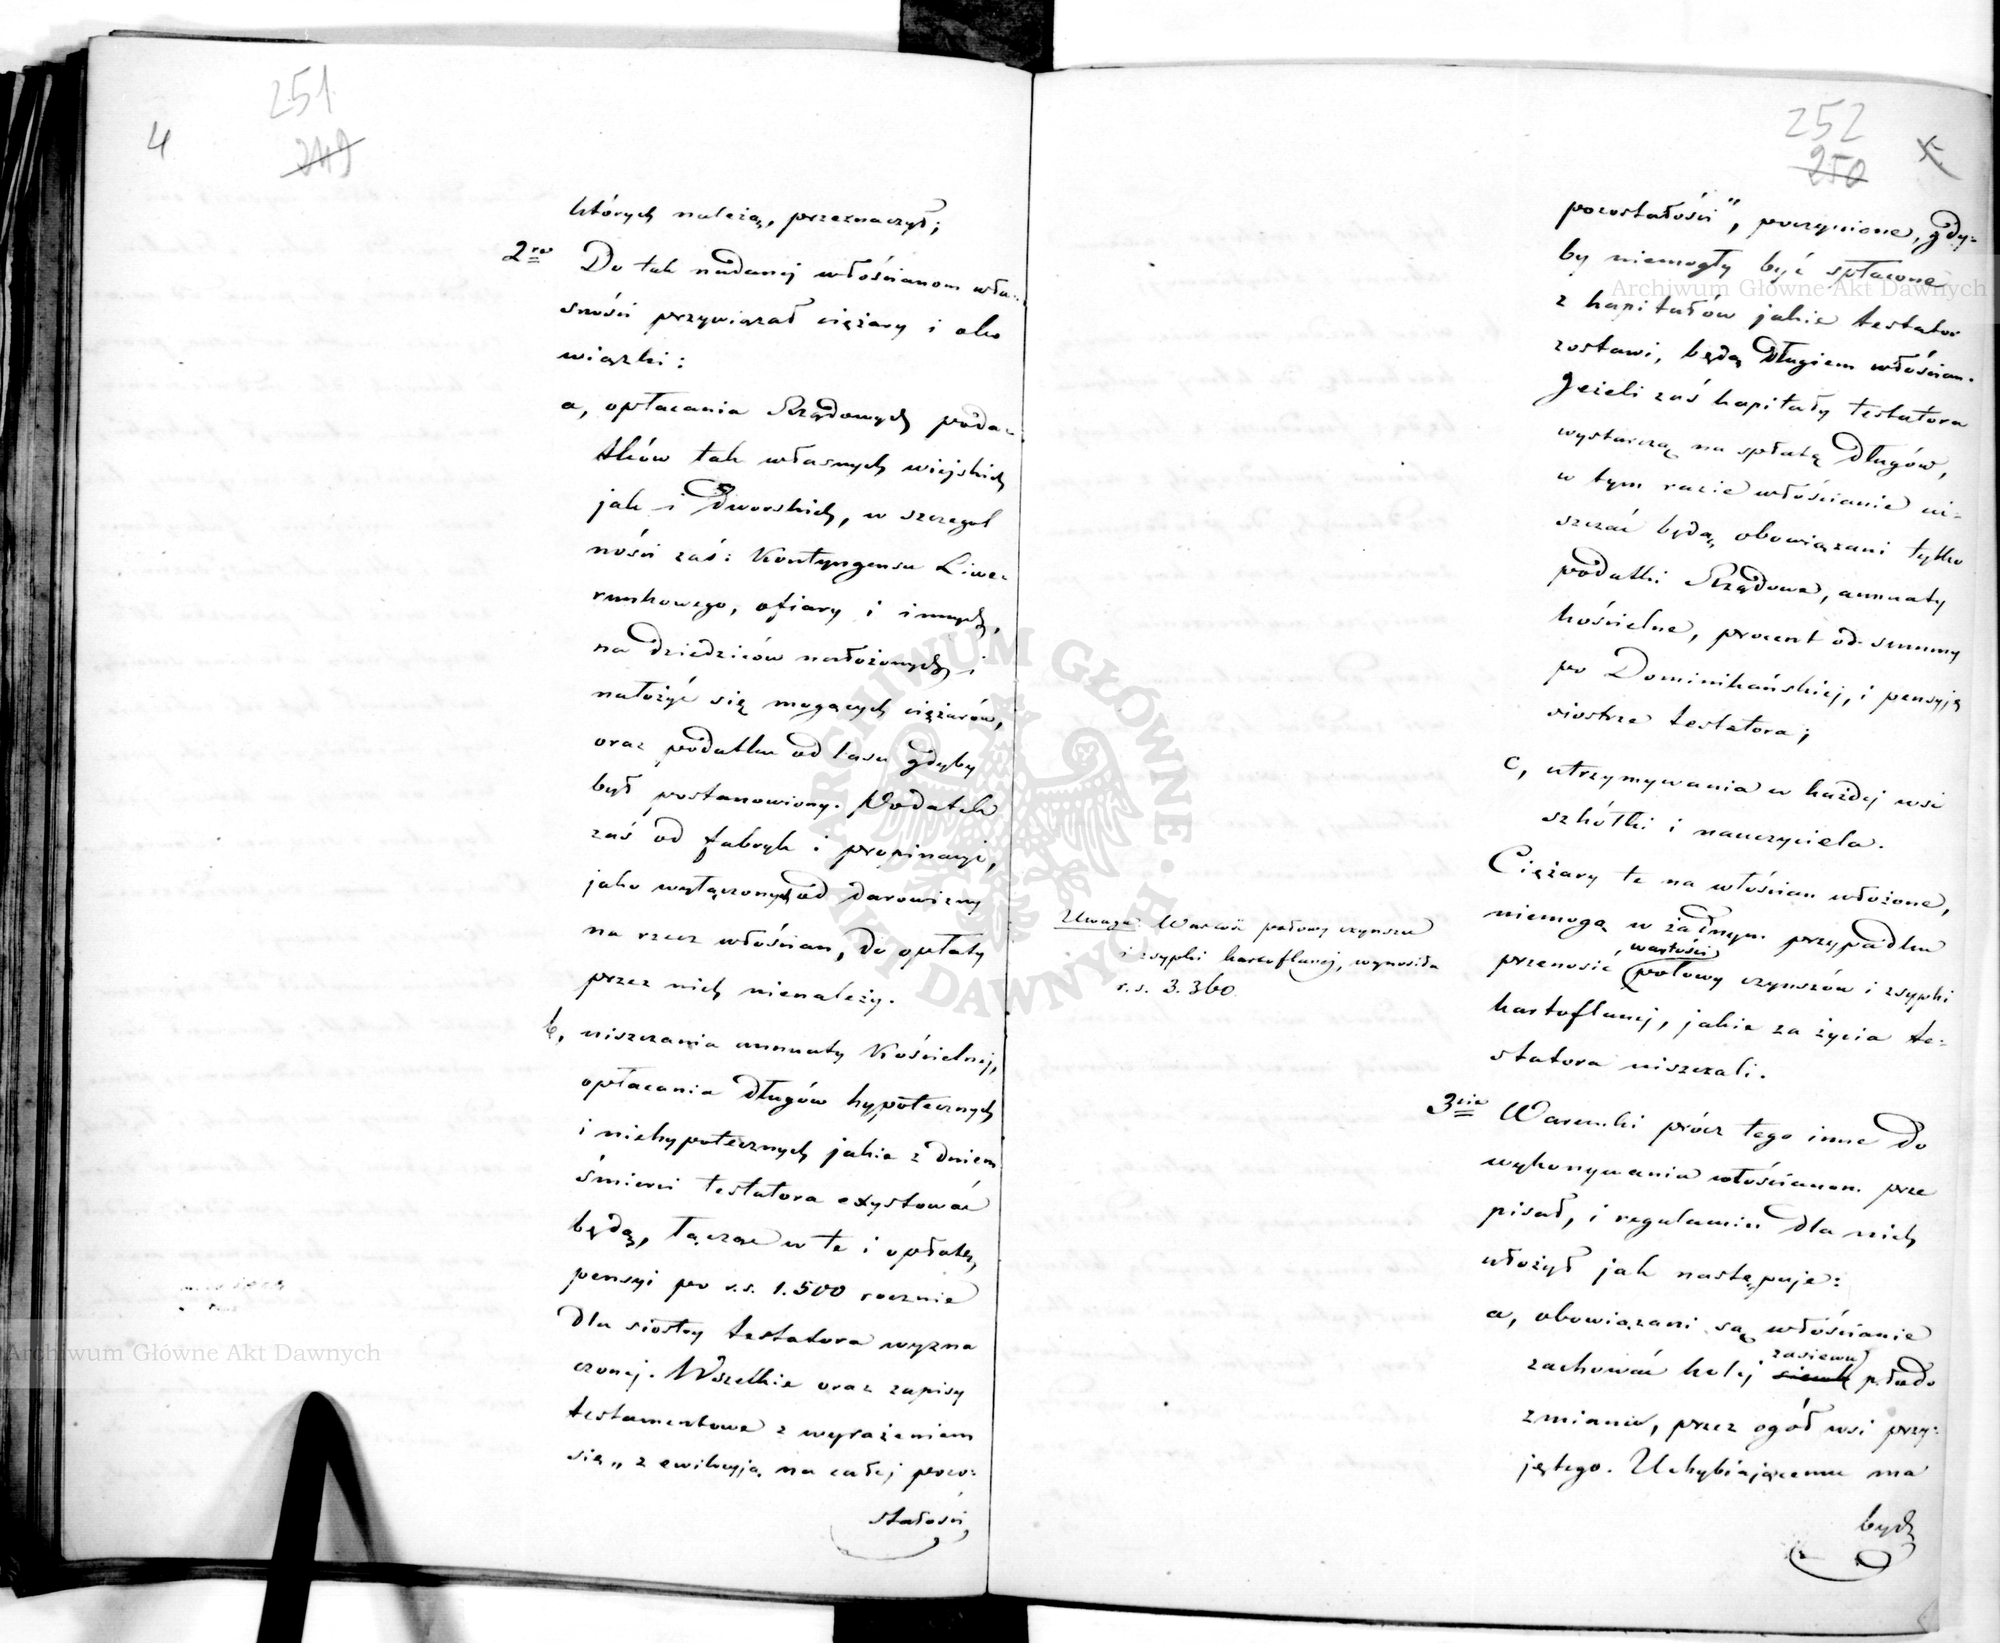 251
249
4
których należą, przeznaczył;
2re Do tak nadanej włościanom wła-
sności przywiązał ciężary i obo
wiązki:
a, opłacania Rządowych poda-
tków tak własnych wiejskich
jak i Dworskich, w szczegól
ności zaś: Kontyngensu Liwe-
runkowego, ofiary i innych,
na dziedziców nałożonych i
nałożyć się mogących ciężarów,
oraz podatku od lasu gdyby
był postanowiony. Podatek
zaś od fabryk i propinacyi,
jako wyłączonych od darowizny
na rzecz włościan, do opłaty
przez nich nienależy.
b, uiszczania annuaty Kościelnej,
opłacania długów hypotecznych
i niehypotecznych jakie z dniem
śmierci testatora exystować
będą, łącząc w te i opłatę,
pensyi po r.s. 1.500 rocznie
dla siostry testatora wyzna
czonej. Wszelkie oraz zapisy
testamentowe z wyrażeniem
się „z ewikcyją na całej pozo-
stałości
252
250
pozostałości", poczynione, gdy-
by niemogły być spłacone
z kapitałów jakie testator
zostawi, będą długiem włościan.
Jeżeli zaś kapitały testatora
wystarczą na spłatę długów,
w tym razie włościanie ui-
szczać będą obowiązani tylko
podatki Rządowe, annuaty
kościelne, procent od summy
po Dominikańskiej, i pensyję
siostrze testatora;
c, utrzymywania w każdej wsi
szkółki i nauczyciela.
Ciężary te na włościan włożone,
niemogą w żadnym przypadku
wartości
przenosić połowy czynszów i zsypki
kartoflanej, jakie za życia te-
statora uiszczali.
Uwaga: Wartość połowy czynszu
i zsypki kartoflanej, wynosiła
r.s. 3.360.
3cie Warunki prócz tego inne do
wykonywania włościanom prze
pisał, i regulamin dla nich
ułożył jak następuje:
a, obowiązani są włościanie
zasiewu
zachować kolej siewu płodo
zmianu, przez ogół wsi przy-
jętego. Uchybiającemu ma
być
Archiwum Główne Akt Dawnych
Archiwum Główne Akt Dawnych
ARCHIWUM GŁÓWNE AKT DAWNYCH